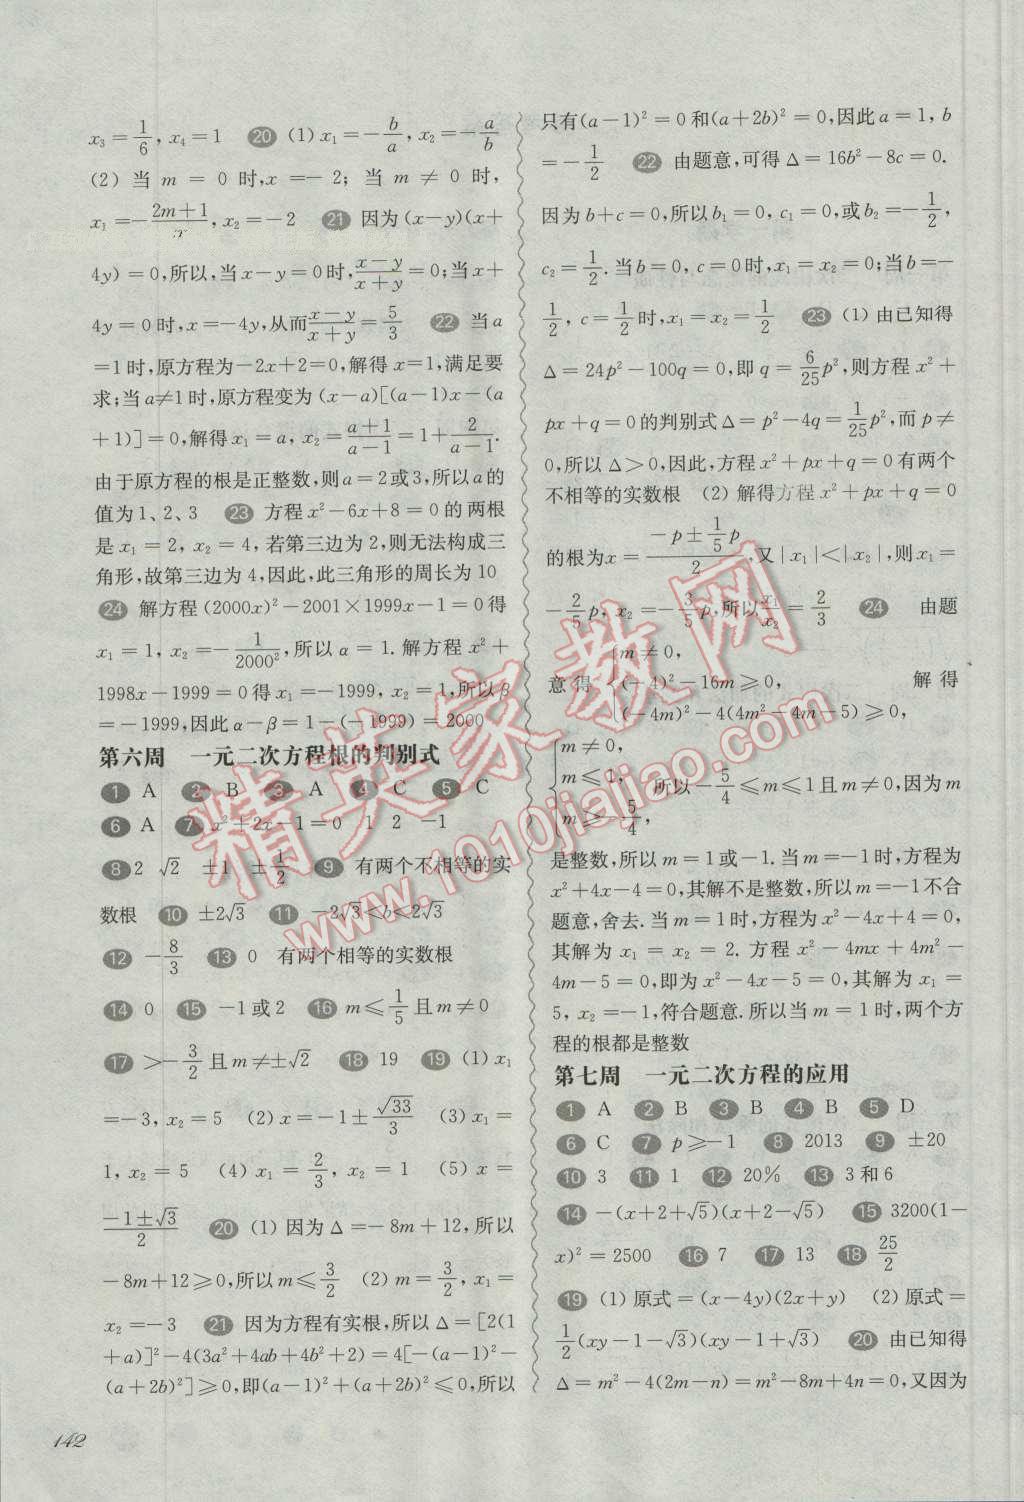 x₃=1/6, x₄=1 20 (1) x₁=-b/a, x₂=-a/b
(2) 当 m = 0 时,x=-2; 当 m ≠ 0 时,
x₁=-(2m+1)/x, x₂=-2 21 因为(x-y)(x+
4y)=0,所以,当x-y=0时,(x-y)/(x+y)=0;当x+
4y=0时,x=-4y,从而(x-y)/(x+y)=5/3 22 当a
=1时,原方程为-2x+2=0,解得x=1,满足要
求;当a≠1时,原方程变为(x-a)[(a-1)x-(a
+1)]=0,解得x₁=a, x₂=(a+1)/(a-1)=1+2/(a-1).
由于原方程的根是正整数,则a=2或3,所以a的
值为1、2、3 23 方程x²-6x+8=0的两根
是x₁=2, x₂=4,若第三边为2,则无法构成三
角形,故第三边为4,因此,此三角形的周长为10
24 解方程(2000x)²-2001×1999x-1=0得
x₁=1, x₂=-1/2000²,所以α=1.解方程x²+
1998x-1999=0得x₁=-1999, x₂=1,所以β
=-1999,因此α-β=1-(-1999)=2000
第六周 一元二次方程根的判别式
1 A 2 B 3 A 4 C 5 C
6 A 7 x²+2x-1=0 1 2 -1
8 2 √2 ±1 ±1/2 9 有两个不相等的实
数根 10 ±2√3 11 -2√3<b<2√3
12 -8/3 13 0 有两个相等的实数根
14 0 15 -1或2 16 m≤1/5且m≠0
17 >-3/2且m≠±√2 18 19 19 (1) x₁
=-3, x₂=5 (2) x=-1±√33/3 (3) x₁=
1, x₂=5 (4) x₁=2/3, x₂=1 (5) x=
(-1±√3)/2 20 (1) 因为Δ=-8m+12,所以
-8m+12≥0,所以m≤3/2 (2) m=3/2, x₁=
x₂=-3 21 因为方程有实根,所以Δ=[2(1
+a)]²-4(3a²+4ab+4b²+2)=4[-(a-1)²-
(a+2b)²]≥0,即(a-1)²+(a+2b)²≤0,所以
142
只有(a-1)²=0和(a+2b)²=0,因此a=1, b
=-1/2 22 由题意,可得Δ=16b²-8c=0.
因为b+c=0,所以b₁=0, c₁=0,或b₂=-1/2,
c₂=1/2.当b=0, c=0时,x₁=x₂=0;当b=-
1/2, c=1/2时,x₁=x₂=1/2 23 (1) 由已知得
Δ=24p²-100q=0,即q=6/25p²,则方程x²+
px+q=0的判别式Δ=p²-4q=1/25p²,而p≠
0,所以Δ>0,因此,方程x²+px+q=0有两个
不相等的实数根 (2) 解得方程x²+px+q=0
的根为x=(-p±1/5p)/2,又|x₁|<|x₂|,则x₁=
-2/5p, x₂=-3/5p,所以x₁/x₂=2/3 24 由题
意得{m≠0, (-4)²-16m≥0, (-4m)²-4(4m²-4m-5)≥0, 解得
{m≠0, m≤1, m≥-5/4, 所以-5/4≤m≤1且m≠0,因为m
是整数,所以m=1或-1.当m=-1时,方程为
x²+4x-4=0,其解不是整数,所以m=-1不合
题意,舍去.当m=1时,方程为x²-4x+4=0,
其解为x₁=x₂=2.方程x²-4mx+4m²-
4m-5=0,即为x²-4x-5=0,其解为x₁=
5, x₂=-1,符合题意.所以当m=1时,两个方
程的根都是整数
第七周 一元二次方程的应用
1 A 2 B 3 B 4 B 5 D
6 C 7 p≥-1 8 2013 9 ±20
10 3 11 1 12 20% 13 3和6
14 -(x+2+√5)(x+2-√5) 15 3200(1-
x)²=2500 16 7 17 13 18 25/2
19 (1) 原式=(x-4y)(2x+y) (2) 原式=
1/2(xy-1-√3)(xy-1+√3) 20 由已知得
Δ=m²-4(2m-n)=m²-8m+4n=0,又因为
精英家教网
www.1010jiajiao.com